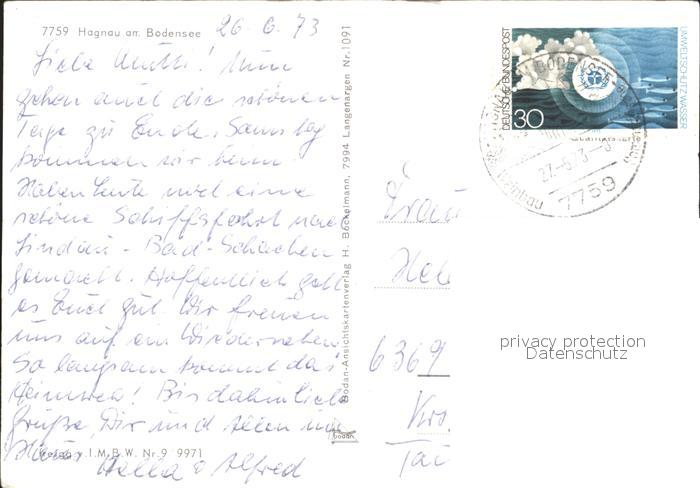 7759 Hagnau am Bodensee 26.6.73
Liebe Mutti! Nun
gehen auch die schönen
Tage zu Ende. Samstag
kommen wir heim
Haben heute noch eine
schöne Schiffsfahrt nach
Lindau - Bad-Schachen
gemacht. Hoffentlich geht
es Euch gut. Wir freuen
uns auf ein Wiedersehen.
So langsam kommt das
Heimweh! Bis dahin liebe
Grüße, Dir und allen im
Haus Hella u Alfred
Freigg. v. I.M.B.W. Nr. 9 9971
Bodan-Ansichtskartenverlag H. Bockelmann, 7994 Langenargen Nr. 1091
bodan
DEUTSCHE BUNDESPOST
30
UMWELTSCHUTZ WASSER
27.-6.73
Weinbau
7759
Frau
Hel
6369
Tau
privacy protection
Datenschutz